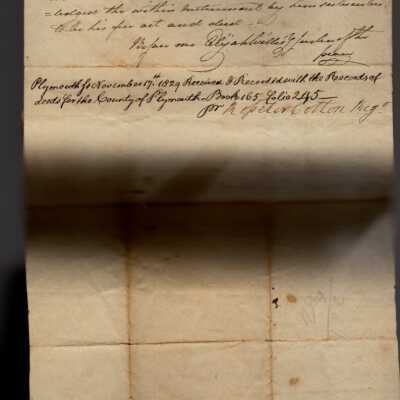 =ledges the within instrument by him subscribed
to be his free act and deed.
Before me Elijah Willis Justice of the
peace
Plymouth ss November 17th 1829 Received & Recorded with the Records of
Deeds for the County of Plymouth Book 165 Folio 245
pr Rossiter Cotton Regr